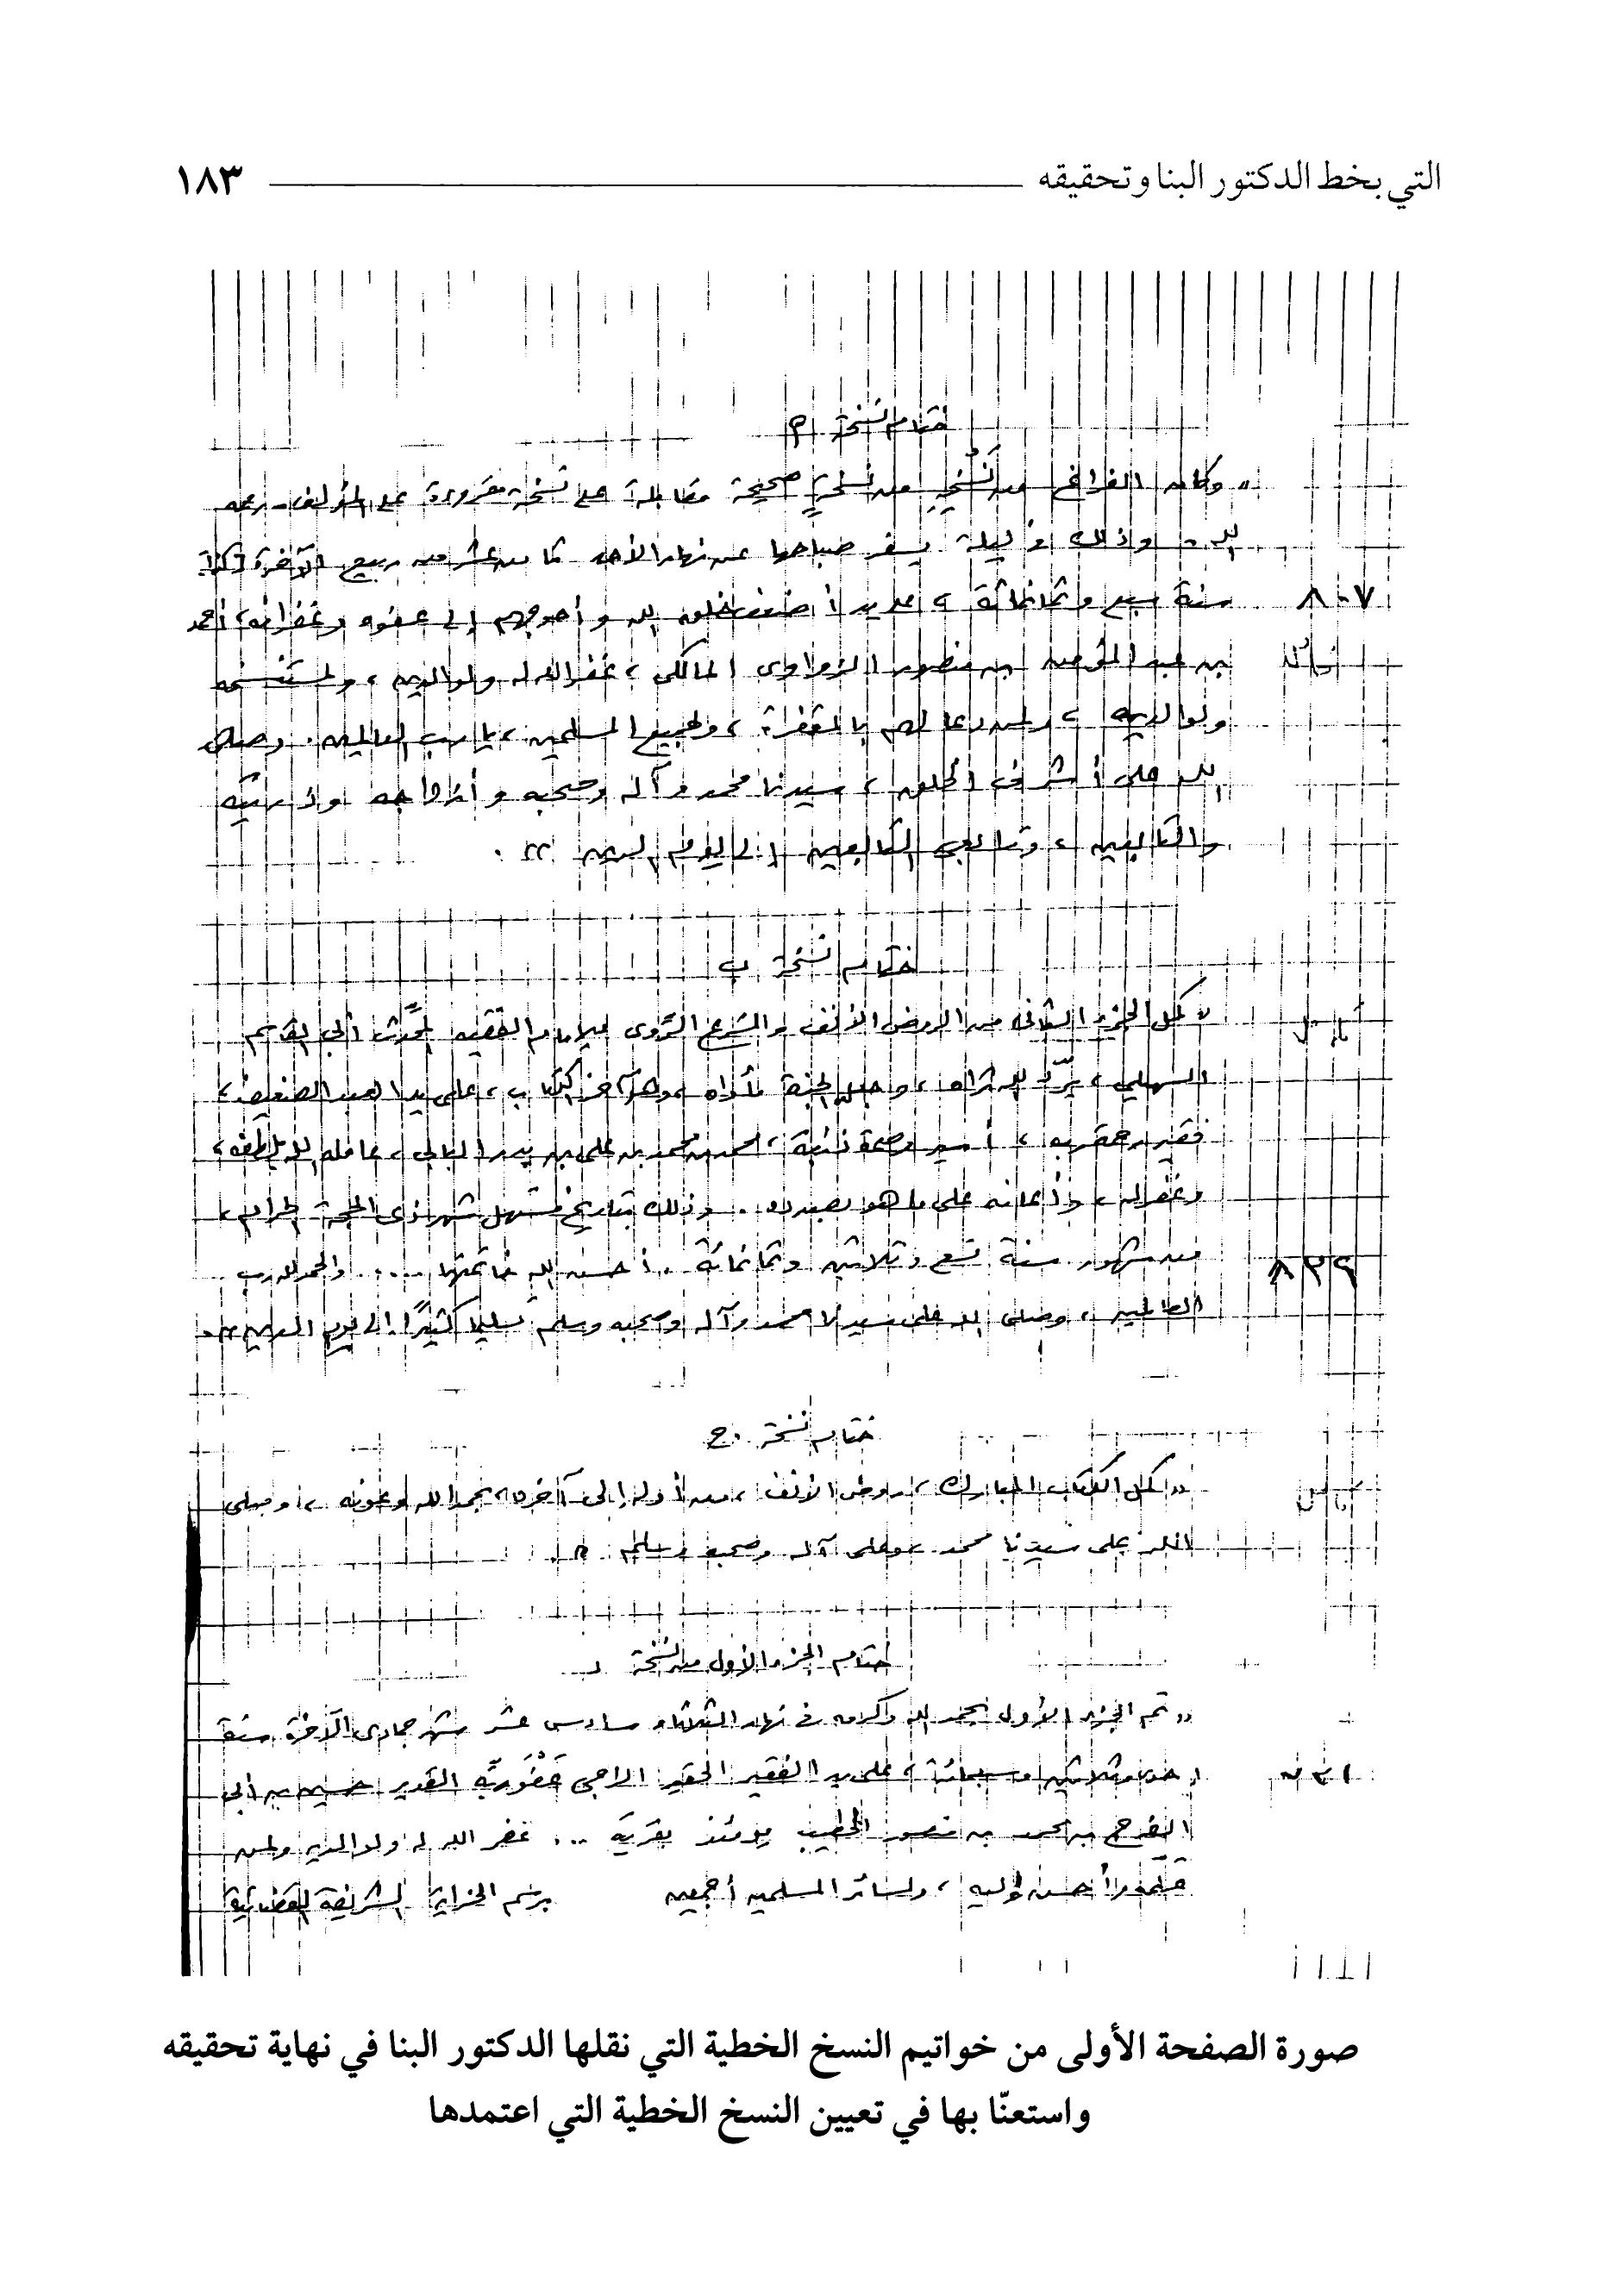 التي بخط الدكتور البنا وتحقيقه ١٨٣
ختام نسخة
« وكان الفراغ من نسخه من نسخة صحيحة مقابلة على نسخة مقروءة على المؤلف - رحمه
الله - وذلك في ليلة يسفر صباحها عن نهار الأحد ثامن عشر من ربيع الآخرة [كذا]
سنة سبع وثمانمائة ، على يد أضعف خلق الله وأحوجهم إلى عفوه وغفرانه ، أحمد
٨٠٧
بن عبد المؤمن بن منصور الزواوى المالكى ، غفر الله له ولوالديه ، ولمستنسخه
ولوالديه ، ولمن دعا لهم بالمغفرة ، ولجميع المسلمين ، يا رب العالمين . وصلى
الله على أشرف الخلق ، سيدنا محمد وآله وصحبه وأزواجه وذريته
والتابعين ، وتابعى التابعين إلى يوم الدين » .
ختام نسخة ب
« كمل الجزء الثانى من الروض الأنف والمشرع الروى للإمام الفقيه المحدث أبى القاسم
السهيلي ، برّد الله ثراه ، وجعل الجنة مأواه ، وهو آخر الكتاب ، على يد العبد الضعيف ،
فقير رحمة ربه ، أسير وصمة ذنبه ، محمد بن محمد بن على بن بدر ، عامله الله بلطفه ،
وغفر له ، وأعانه على ما هو بصدده . وذلك بتاريخ مستهل شهر ذى الحجة الحرام ،
من شهور سنة تسع وثلاثين وثمانمائة . أحسن الله خاتمتها .... والحمد لله رب
٨٣٩
العالمين ، وصلى الله على سيدنا محمد وآله وصحبه وسلم تسليما كثيرًا إلى يوم الدين » .
ختام نسخة ج
« كمل الكتاب المبارك ، روض الأنف ، من أوله إلى آخره ، بحمد الله وعونه ، وصلى
الله على سيدنا محمد وعلى آله وصحبه وسلم » .
ختام الجزء الأول من نسخة
« تم الجزء الأول بحمد الله وكرمه في نهار الثلاثاء سادس عشر شهر جمادى الآخرة سنة
وثلاثين وسبعمائة ، على يد الفقير الحقير الراجى عفو ربّه القدير حسين بن أبى
الفرج بن محمد بن منصور الخطيب يومئذ بقرية ... غفر الله له ولوالديه ولمن
علمه وأحسن إليه ، ولسائر المسلمين أجمعين برسم الخزانة الشريفة
صورة الصفحة الأولى من خواتيم النسخ الخطية التي نقلها الدكتور البنا في نهاية تحقيقه
واستعنّا بها في تعيين النسخ الخطية التي اعتمدها